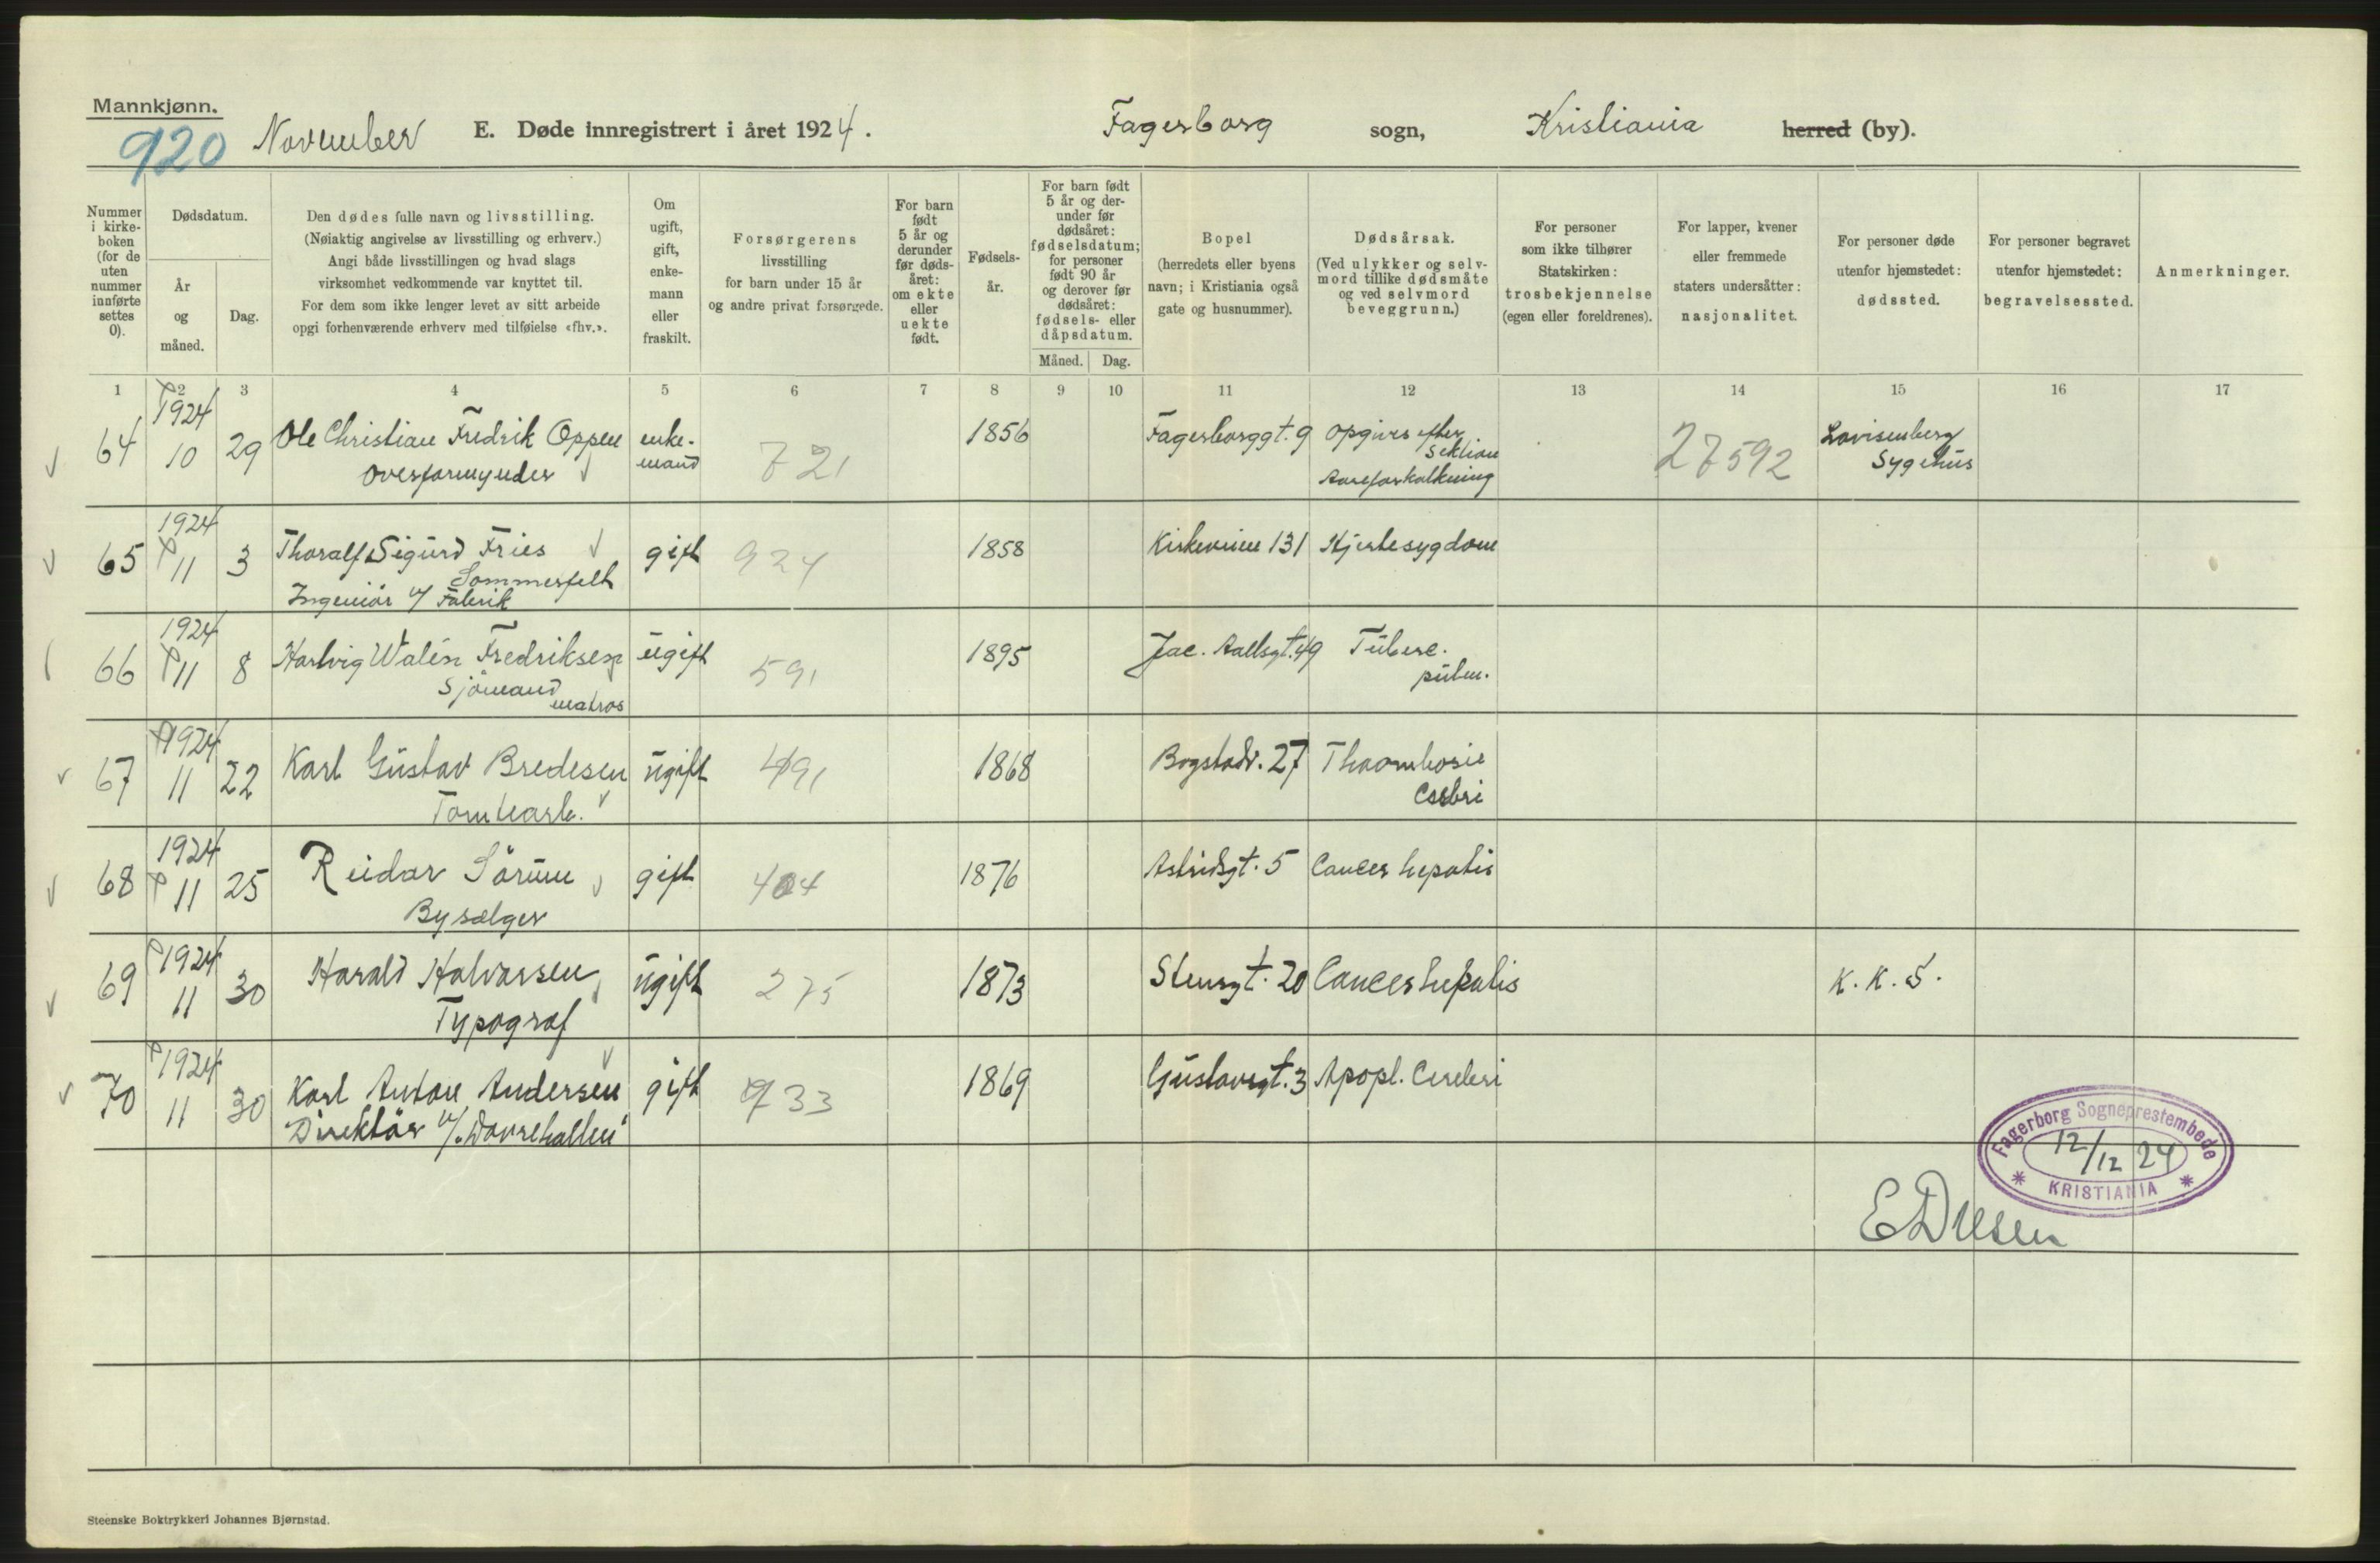 Mannkjønn.
920 November E. Døde innregistrert i året 1924. Fagerborg sogn, Kristiania herred (by).
Nummer i kirkeboken (for de uten nummer innførte settes 0).
Dødsdatum.
År og måned.
Dag.
Den dødes fulle navn og livsstilling.
(Nøiaktig angivelse av livsstilling og erhverv.)
Angi både livsstillingen og hvad slags
virksomhet vedkommende var knyttet til.
For dem som ikke lenger levet av sitt arbeide
opgi forhenværende erhverv med tilføielse «fhv.».
Om ugift, gift, enkemann eller fraskilt.
Forsørgerens
livsstilling
for barn under 15 år
og andre privat forsørgede.
For barn født 5 år og derunder før dødsåret: om ekte eller uekte født.
Fødselsår.
For barn født 5 år og derunder før dødsåret: fødselsdatum; for personer født 90 år og derover før dødsåret: fødsels- eller dåpsdatum.
Måned. Dag.
Bopel
(herredets eller byens
navn; i Kristiania også
gate og husnummer).
Dødsårsak.
(Ved ulykker og selvmord tillike dødsmåte
og ved selvmord
beveggrunn.)
For personer
som ikke tilhører
Statskirken:
trosbekjennelse
(egen eller foreldrenes).
For lapper, kvener
eller fremmede
staters undersåtter:
nasjonalitet.
For personer døde
utenfor hjemstedet:
dødssted.
For personer begravet
utenfor hjemstedet:
begravelsessted.
Anmerkninger.
1 2 3 4 5 6 7 8 9 10 11 12 13 14 15 16 17
64 1924 10 29 Ole Christian Fredrik Oppen enkemand 721 1856 Fagerborggt. 9 Opgives efter Sektion 27592 Lovisenberg
Overformynder Aareforkalkning Sygehus
65 1924 11 3 Thoralf Sigurd Fries gift 924 1858 Kirkeveien 131 Hjertesygdom
Sommerfelt
Ingeniör v/ Fabrik
66 1924 11 8 Hartvig Walén Fredriksen ugift 591 1895 Jac. Aallsgt. 49 Tuberc.
Sjömand pulm.
matros
67 1924 11 22 Karl Gustav Bredesen ugift 491 1868 Bogstadv. 27 Thrombosie
Tomtearb. Cerebri
68 1924 11 25 Reidar Sörum gift 404 1876 Astridsgt. 5 Cancer hepatis
Bysælger
69 1924 11 30 Harald Halvorsen ugift 275 1873 Stensgt. 20 Cancer hepatis K. K. S.
Typograf
70 1924 11 30 Karl Anton Andersen gift 933 1869 Gustavsgt. 3 Apopl. Cerebri
Direktör v/ "Dovrehallen"
Fagerborg Sogneprestembede
12/12 24
KRISTIANIA
Steenske Boktrykkeri Johannes Bjørnstad.